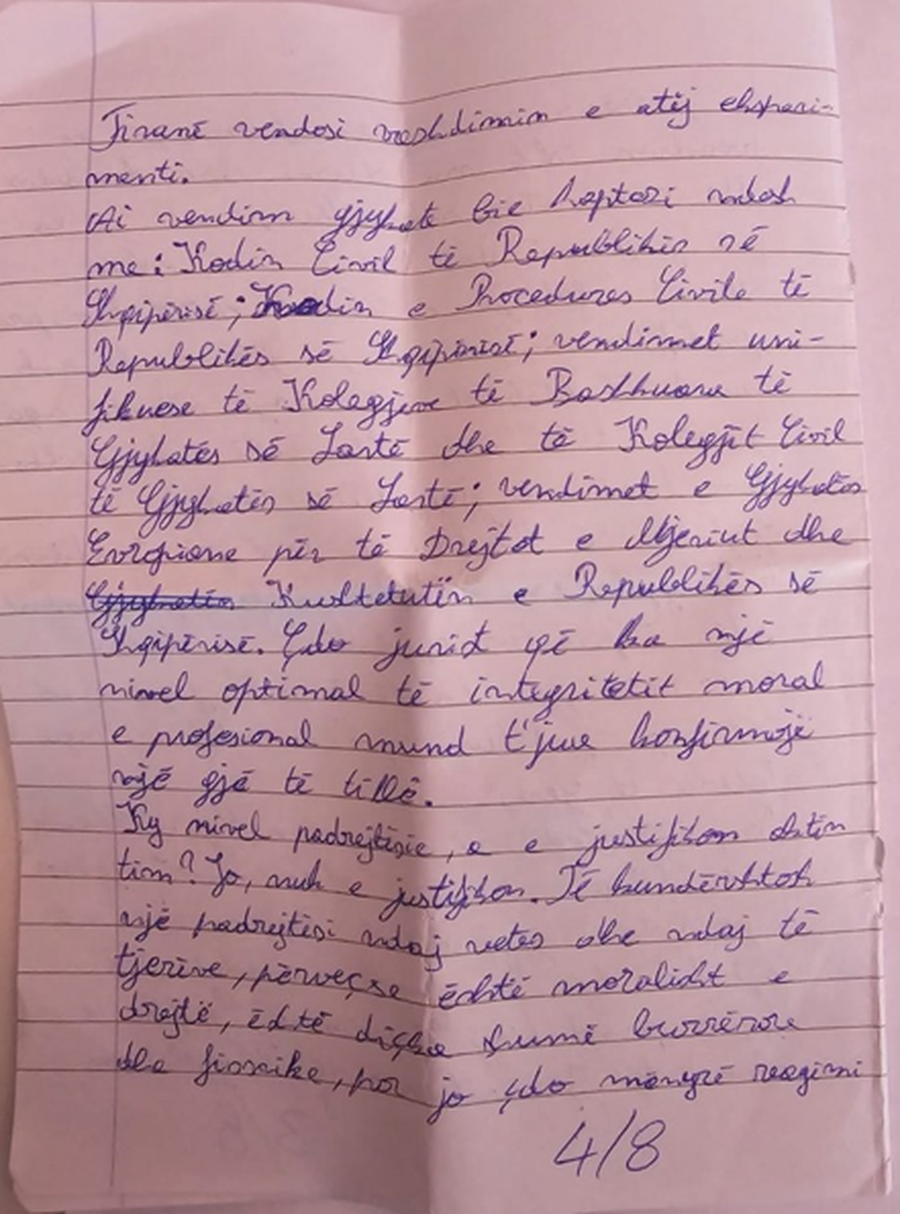 Tiranë vendosi rrëshdimin e atij ekspari-
menti.
Ai vendim gjyqësor bie haptazi ndesh
me: Kodin Civil të Republikës së
Shqipërisë; Kodin e Procedurës Civile të
Republikës së Shqipërisë; vendimet uni-
fikuese të Kolegjeve të Bashkuara të
Gjykatës së Lartë dhe të Kolegjit Civil
të Gjykatës së Lartë; vendimet e Gjykatës
Evropiane për të Drejtat e Njeriut dhe
Gjykatën Kushtetutën e Republikës së
Shqipërisë. Çdo jurist që ka një
nivel optimal të integritetit moral
e profesional mund t'jua konfirmojë
një gjë të tillë.
Ky nivel padrejtësie, a e justifikon aktin
tim? Jo, nuk e justifikon. Të kundërshtosh
një padrejtësi ndaj vetes dhe ndaj të
tjerëve, përveçse është moralisht e
drejtë, është diçka shumë burrërore
dhe fisnike, por jo çdo mënyrë reagimi
4/8